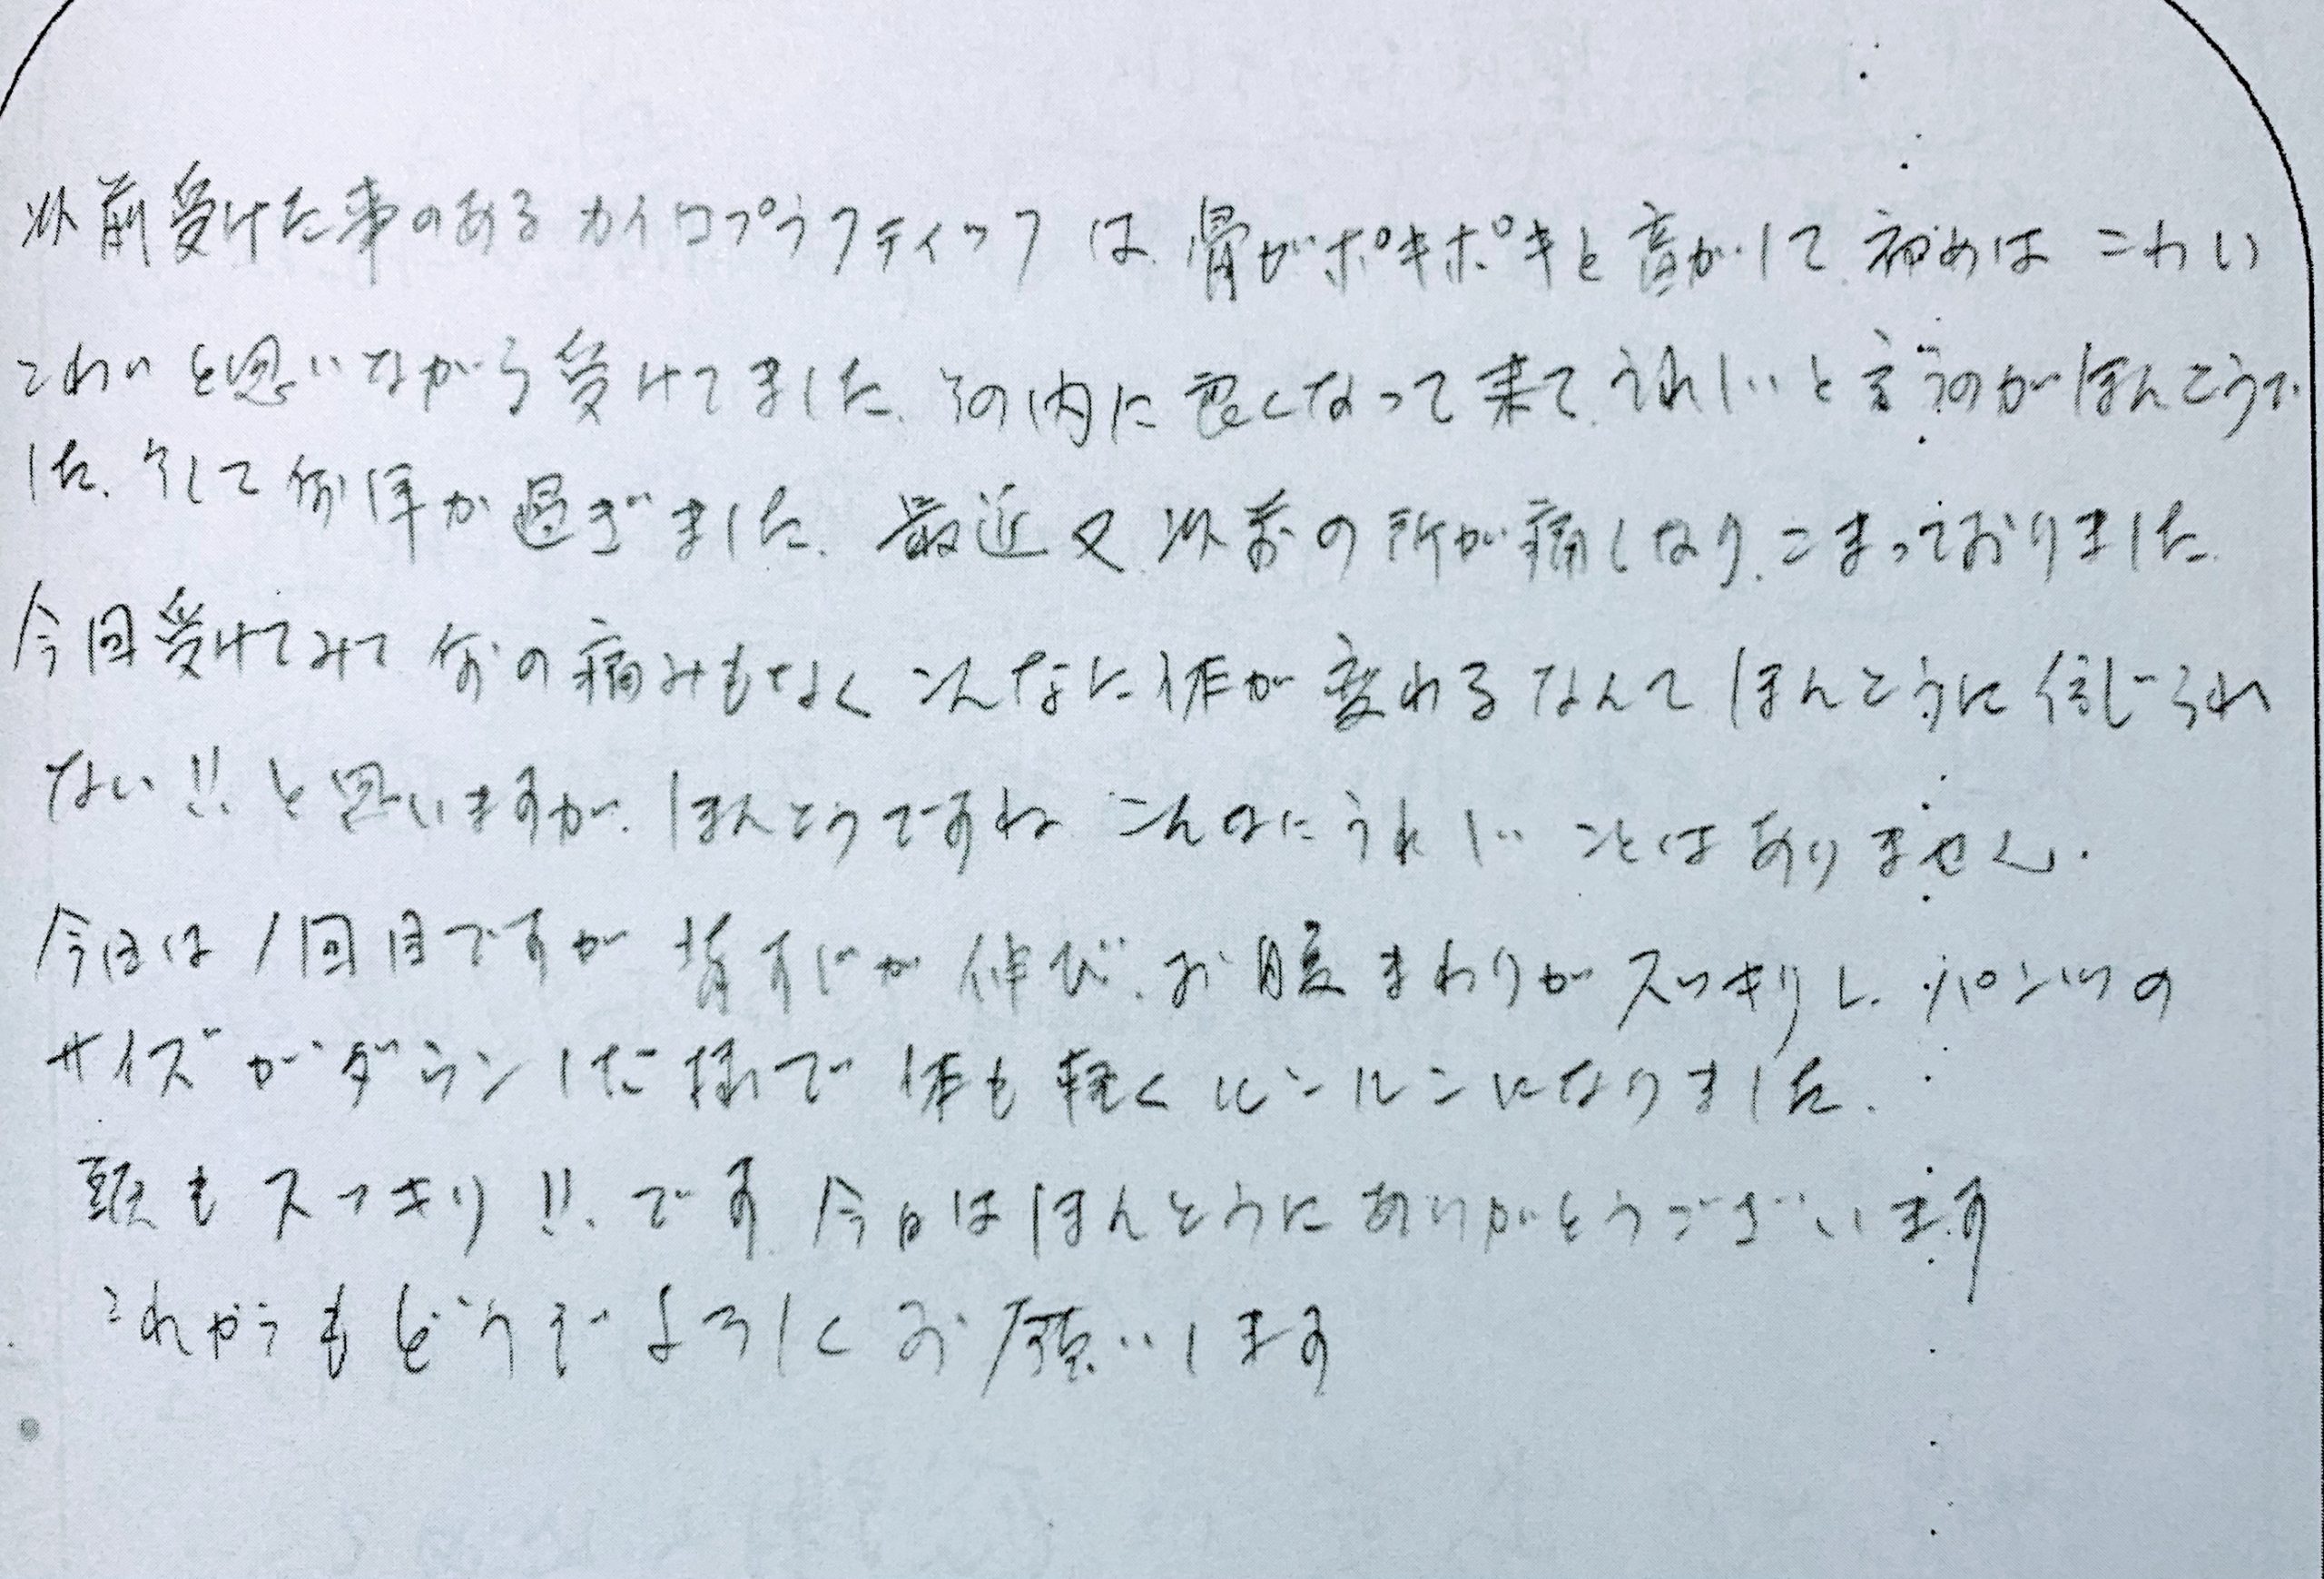 以前受けた事のあるカイロプラクティックは、骨がポキポキと音がして、初めはこわい
こわいと思いながら受けてました。その内に良くなって来て、うれしいと言うのがほんとうで
した。そして何年か過ぎました。最近又、以前の所が痛くなり、こまっておりました。
今回受けてみて何の痛みもなくこんなに体が変わるなんてほんとうに信じられ
ない!!と思いますが、ほんとうですね こんなにうれしいことはありません。
今日は1回目ですが背すじが伸び、お腹まわりがスッキリし、パンツの
サイズがダウンした様で体も軽くルンルンになりました。
頭もスッキリ!!です。今日はほんとうにありがとうございます
これからもどうぞよろしくお願いします